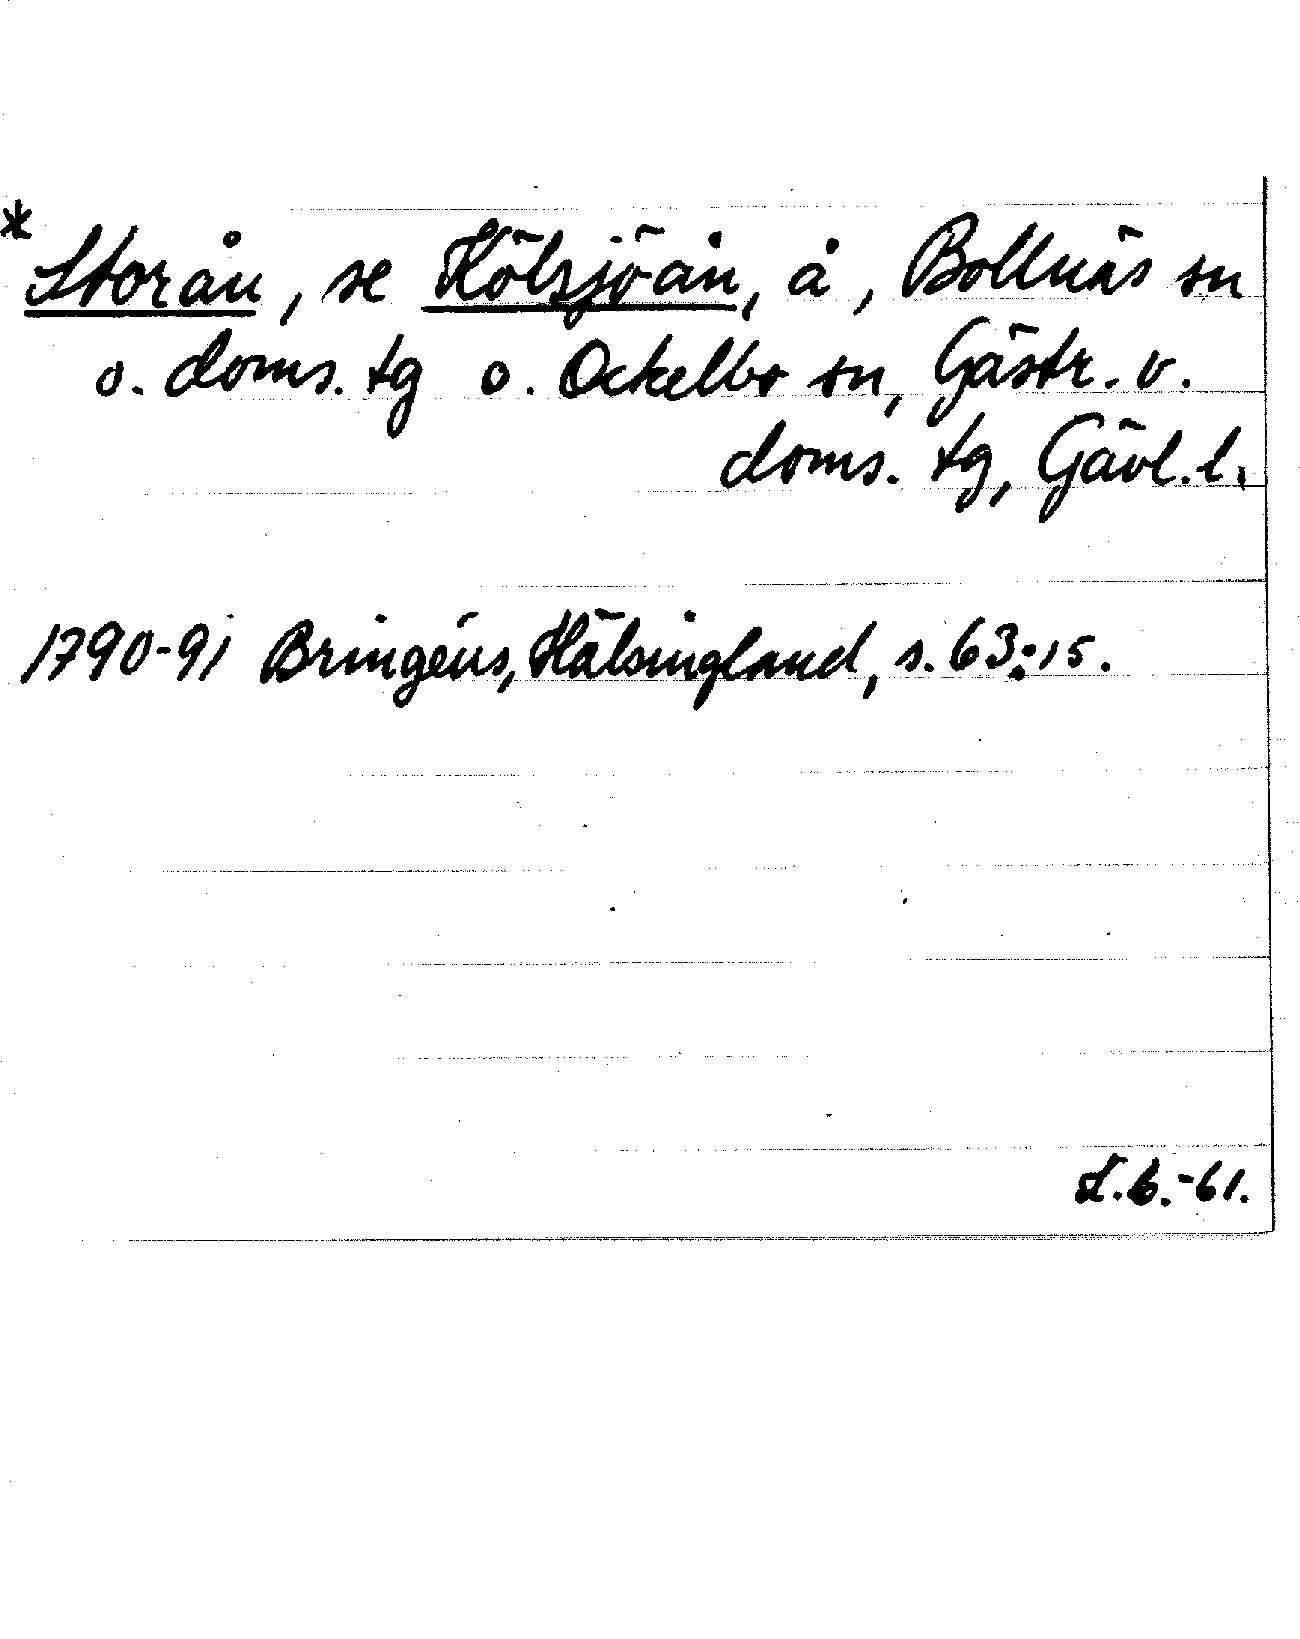 *Storån, se Hölsjöån, å, Bollnäs sn
o. doms. tg o. Ockelbo sn, Gästr. v.
doms. tg, Gävl. l.
1790-91 Bringéus, Hälsingland, s. 63:15.
L.b.-61.